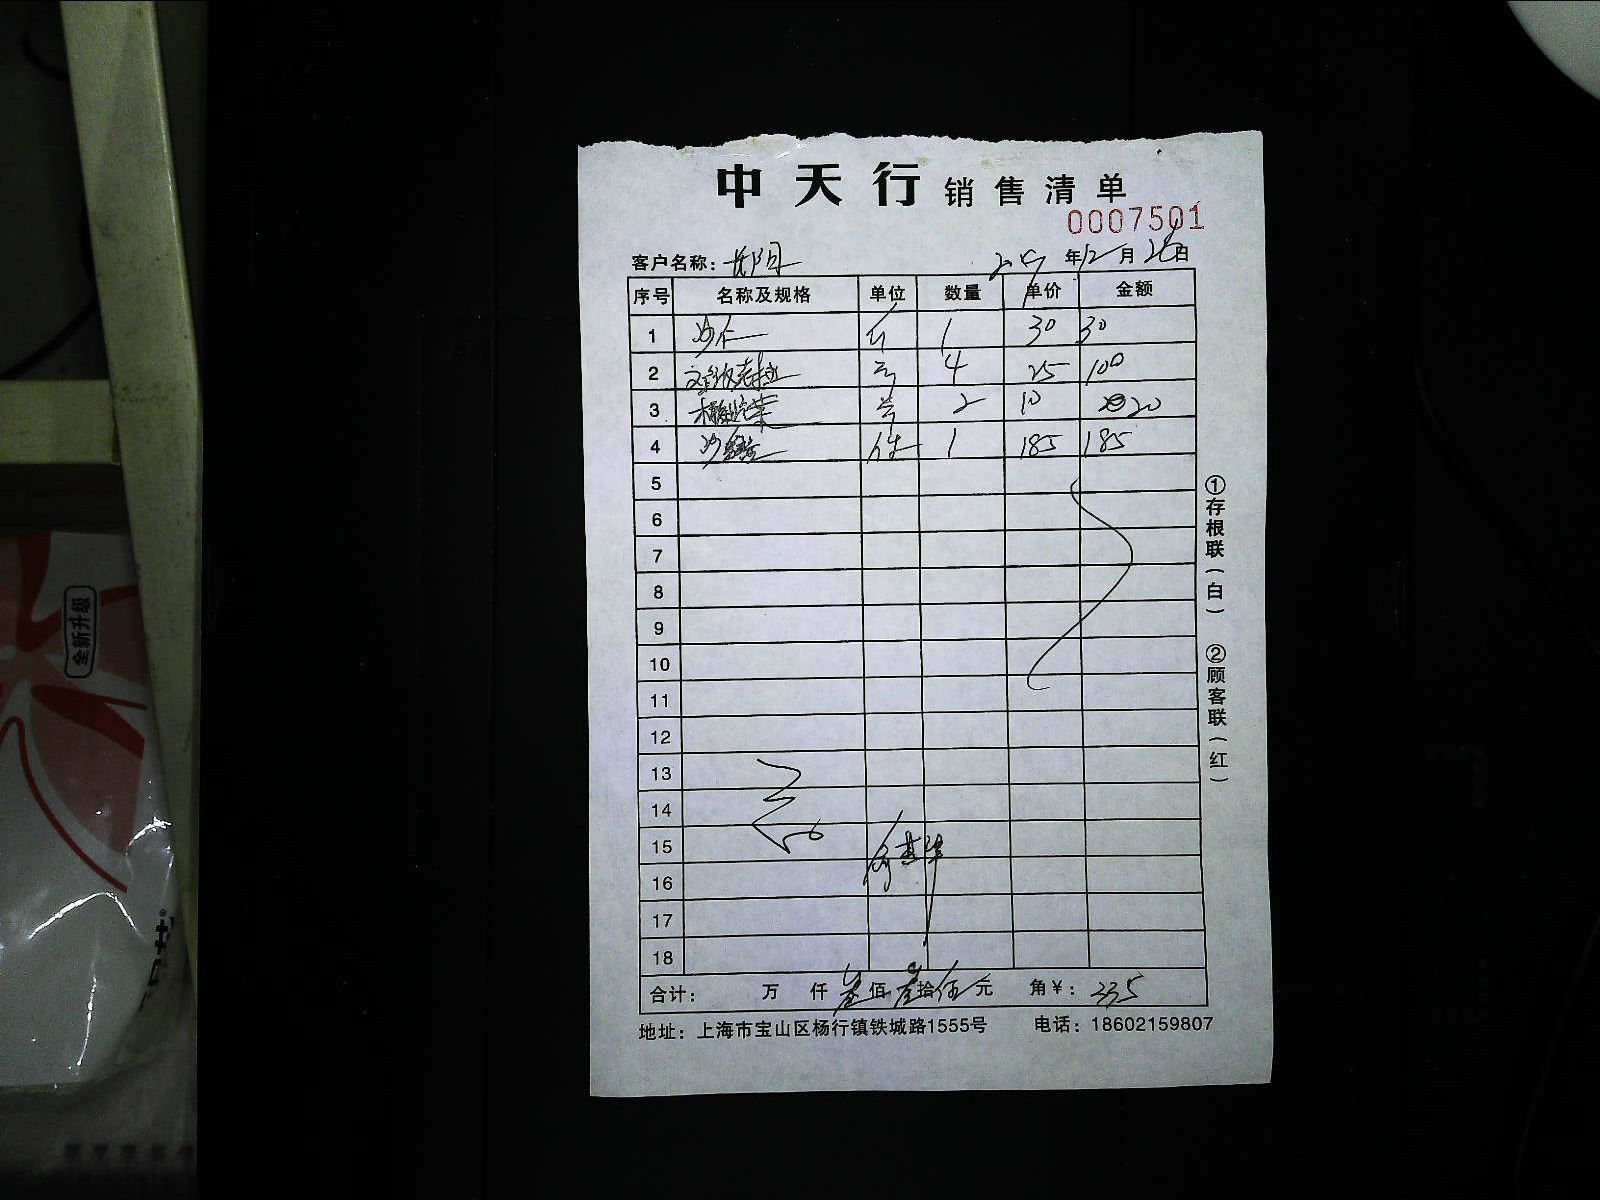 中天行 销售清单
0007501
客户名称: 年12月26日
序号 名称及规格 单位 数量 单价 金额
1 沙仁 斤 1 30 30
2 4 25 100
3 2 10 20
4 件 1 185 185
5
6
7
8
9
10
11
12
13
14
15
16
17
18
合计: 万 仟 叁佰 叁拾 伍元 角¥: 335
地址: 上海市宝山区杨行镇铁城路1555号 电话: 18602159807
①存根联(白) ②顾客联(红)
全新升级